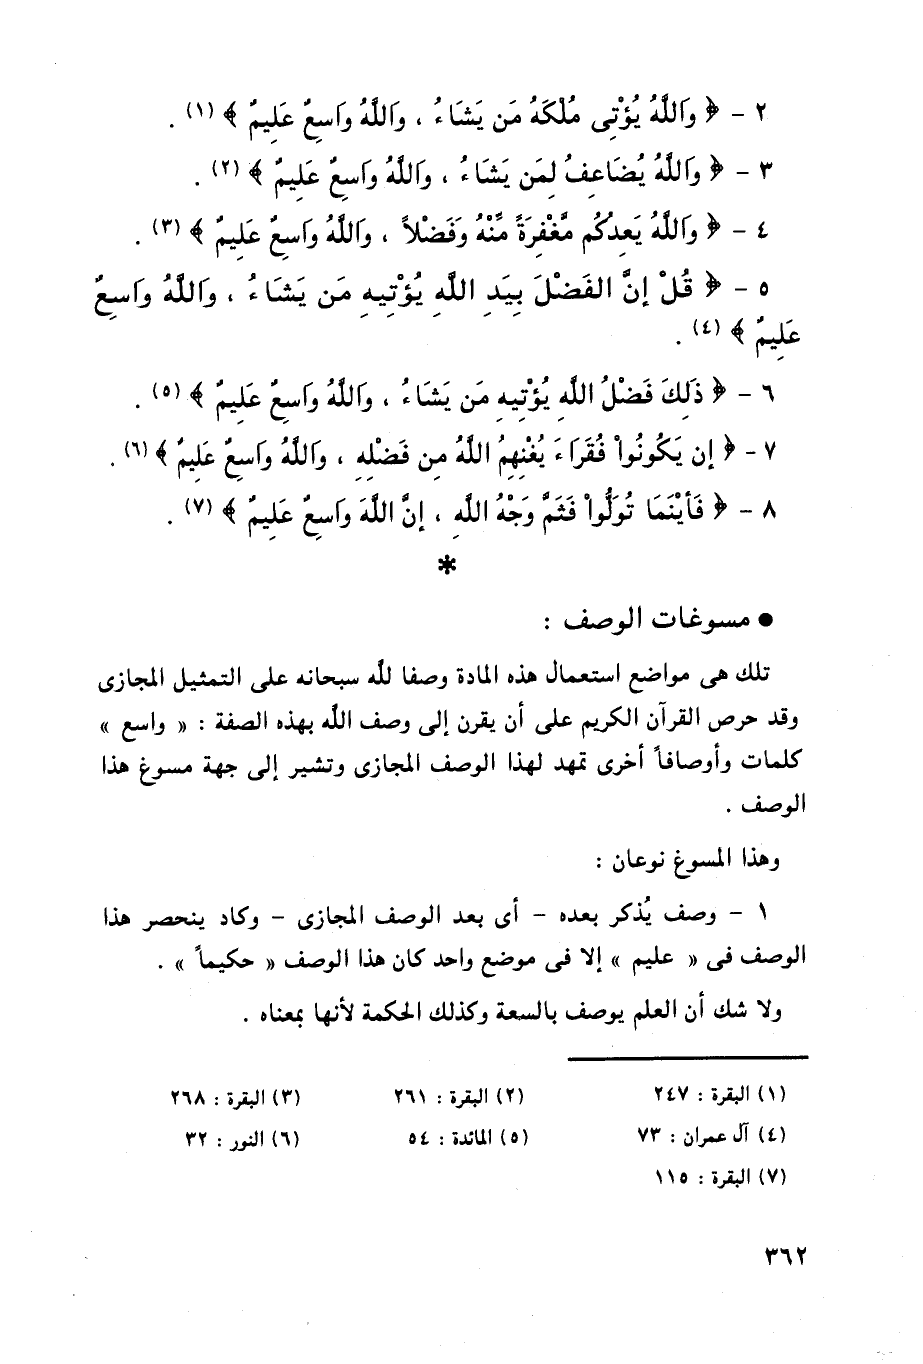 ٢ – ﴿ وَاللَّهُ يُؤْتِى مُلْكَهُ مَن يَشَاءُ ، وَاللَّهُ وَاسِعٌ عَلِيمٌ ﴾ (١) .
٣ – ﴿ وَاللَّهُ يُضَاعِفُ لِمَن يَشَاءُ ، وَاللَّهُ وَاسِعٌ عَلِيمٌ ﴾ (٢) .
٤ – ﴿ وَاللَّهُ يَعِدُكُم مَّغْفِرَةً مِّنْهُ وَفَضْلاً ، وَاللَّهُ وَاسِعٌ عَلِيمٌ ﴾ (٣) .
٥ – ﴿ قُلْ إِنَّ الفَضْلَ بِيَدِ اللَّهِ يُؤْتِيهِ مَن يَشَاءُ ، وَاللَّهُ وَاسِعٌ
عَلِيمٌ ﴾ (٤) .
٦ – ﴿ ذَلِكَ فَضْلُ اللَّهِ يُؤْتِيهِ مَن يَشَاءُ ، وَاللَّهُ وَاسِعٌ عَلِيمٌ ﴾ (٥) .
٧ – ﴿ إِن يَكُونُواْ فُقَرَاءَ يُغْنِهِمُ اللَّهُ مِن فَضْلِهِ ، وَاللَّهُ وَاسِعٌ عَلِيمٌ ﴾ (٦) .
٨ – ﴿ فَأَيْنَمَا تُوَلُّواْ فَثَمَّ وَجْهُ اللَّهِ ، إِنَّ اللَّهَ وَاسِعٌ عَلِيمٌ ﴾ (٧) .
*
● مسوغات الوصف :
تلك هى مواضع استعمال هذه المادة وصفا لله سبحانه على التمثيل المجازى
وقد حرص القرآن الكريم على أن يقرن إلى وصف الله بهذه الصفة : « واسع »
كلمات وأوصافاً أخرى تمهد لهذا الوصف المجازى وتشير إلى جهة مسوغ هذا
الوصف .
وهذا المسوغ نوعان :
١ – وصف يُذكر بعده – أى بعد الوصف المجازى – وكاد ينحصر هذا
الوصف فى « عليم » إلا فى موضع واحد كان هذا الوصف « حكيماً » .
ولا شك أن العلم يوصف بالسعة وكذلك الحكمة لأنها بمعناه .
(١) البقرة : ٢٤٧ (٢) البقرة : ٢٦١ (٣) البقرة : ٢٦٨
(٤) آل عمران : ٧٣ (٥) المائدة : ٥٤ (٦) النور : ٣٢
(٧) البقرة : ١١٥
٣٦٢